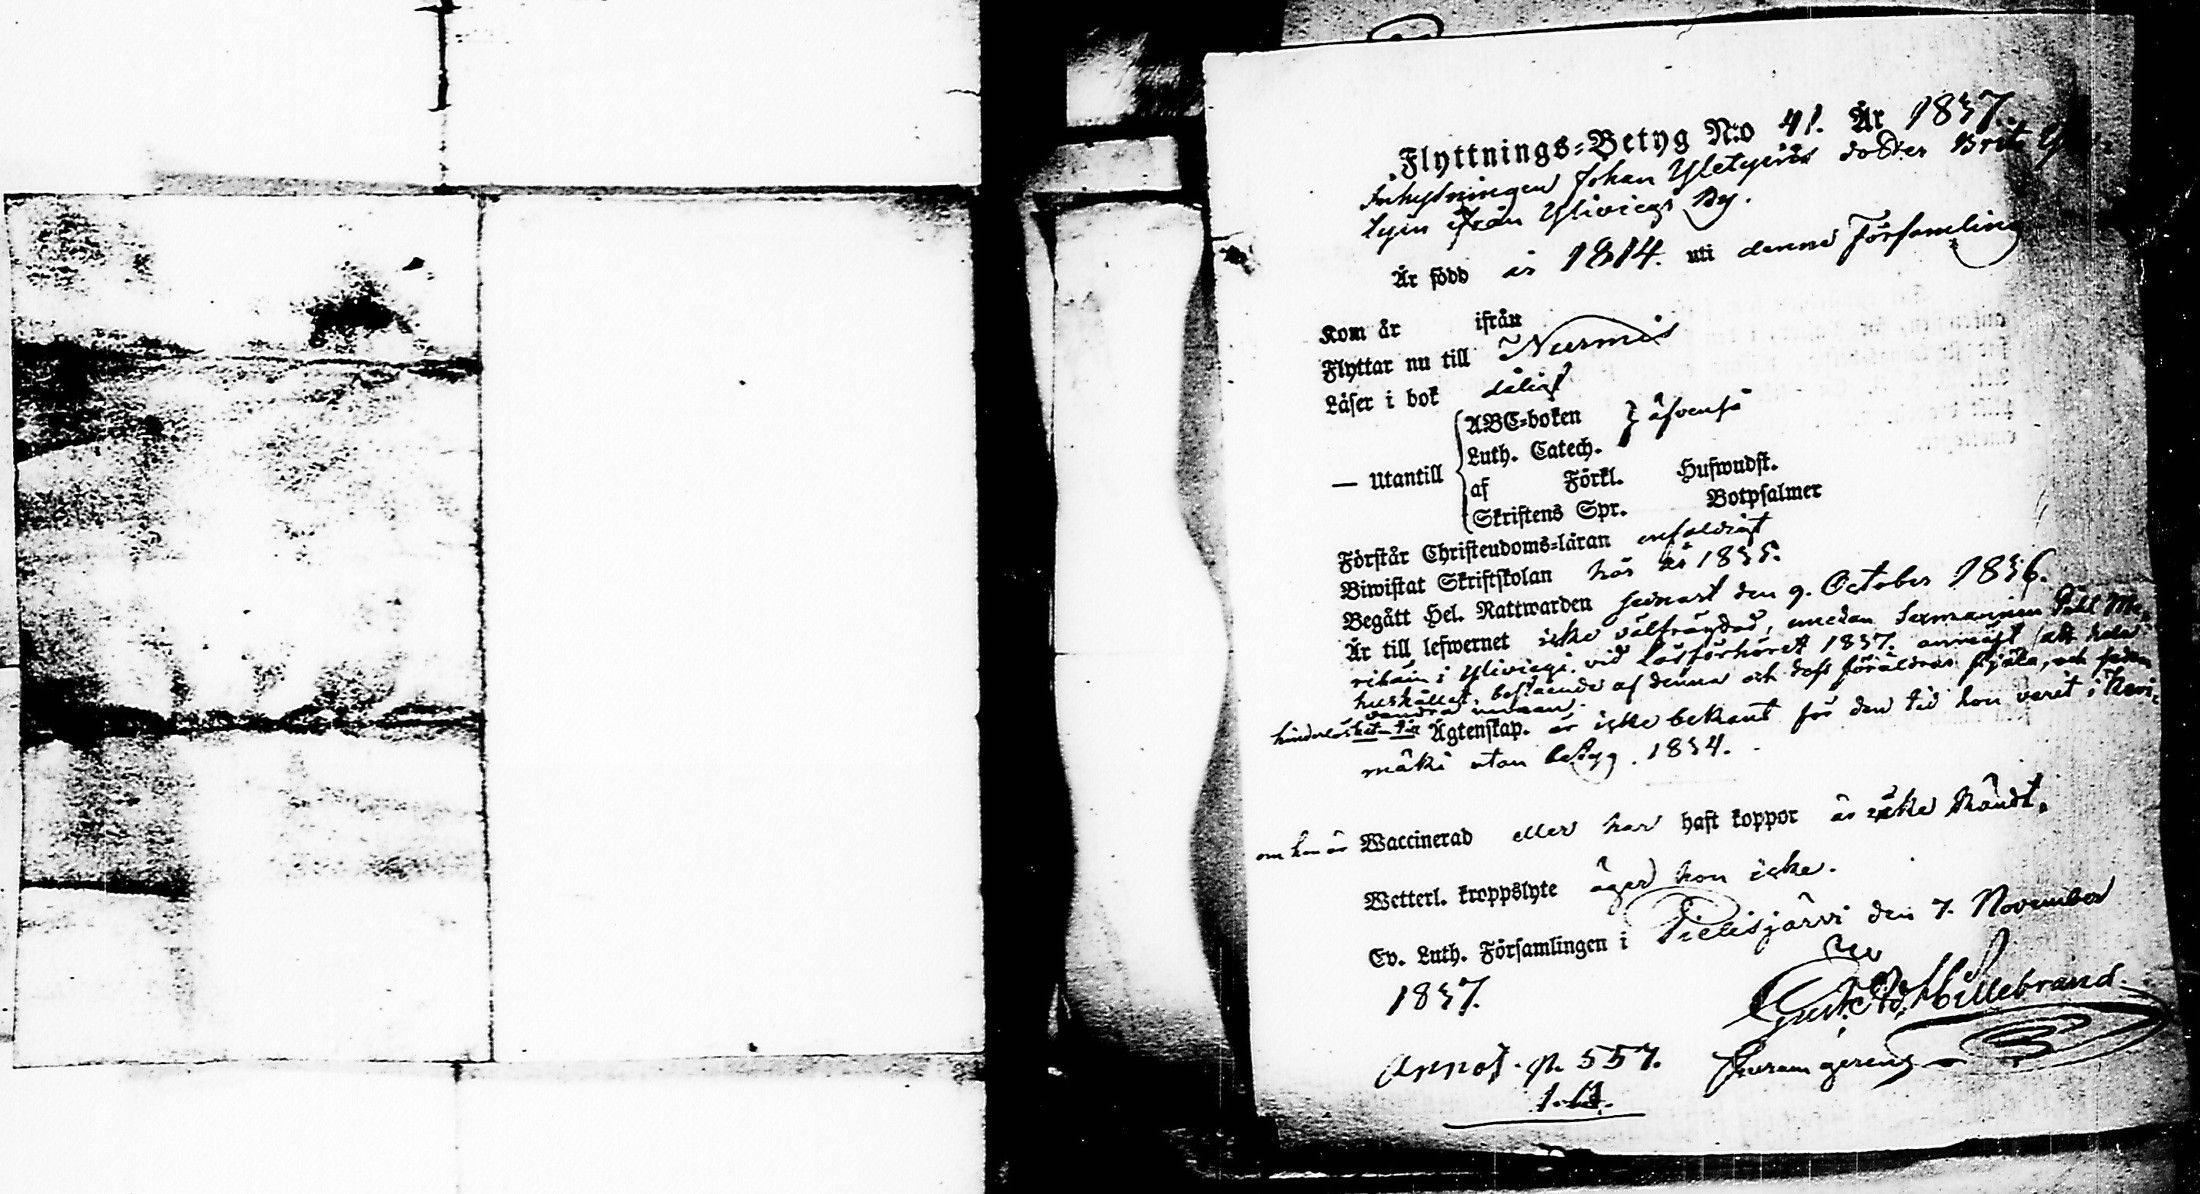 Flyttnings-Betyg N:o 41. År 1837.
Inhysningen Johan Yletyinens dotter Brita Yle-
tyin från Yliviexi By.
Är född år 1814. uti denne Församling
Kom år ifrån
Flyttar nu till Nurmis
Läser i bok dåligt
— Utantill
ABC-boken } äfvenså
Luth. Catech.
af Förkl. Hufwudst.
Skriftens Spr. Botpsalmer
Förstår Christendoms-läran enfaldigt
Biwistat Skriftskolan här år 1835.
Begått Hel. Nattwarden senast den 9. October 1836.
Är till lefwernet icke välfrägdad, medan
i Yliviexi vid Läsförhöret 1837. anmält att hela
hushållet, bestående af denna och dess föräldrar stjäla, och
Ägtenskap. är icke bekant för den tid hon varit i
mäki utan betyg. 1834.
om hon är Waccinerad eller har haft koppor är icke kändt.
Wetterl. kroppslyte äger hon icke.
Ev. Luth. Församlingen i Pielisjärvi den 7. November
1837.
Hillebrand.
Annot. p. 557.